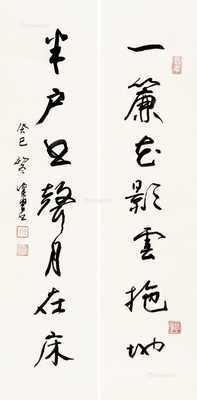 一簾花影雲拖地
半戶書聲月在床
癸巳